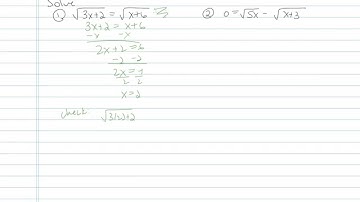 Solve
① √3x+2 = √x+6
3x+2 = x+6
-x -x
2x+2=6
-2 -2
2x=4
2 2
x=2
check √3(2)+2
② 0=√5x - √x+3